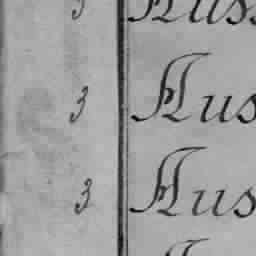 3 Aus
3 Aus
3 Aus